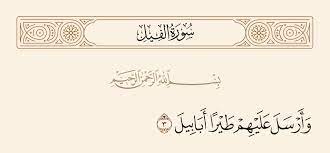 سُورَةُ الفِيلِ
بِسْمِ اللَّهِ الرَّحْمَٰنِ الرَّحِيمِ
وَأَرْسَلَ عَلَيْهِمْ طَيْرًا أَبَابِيلَ ٣